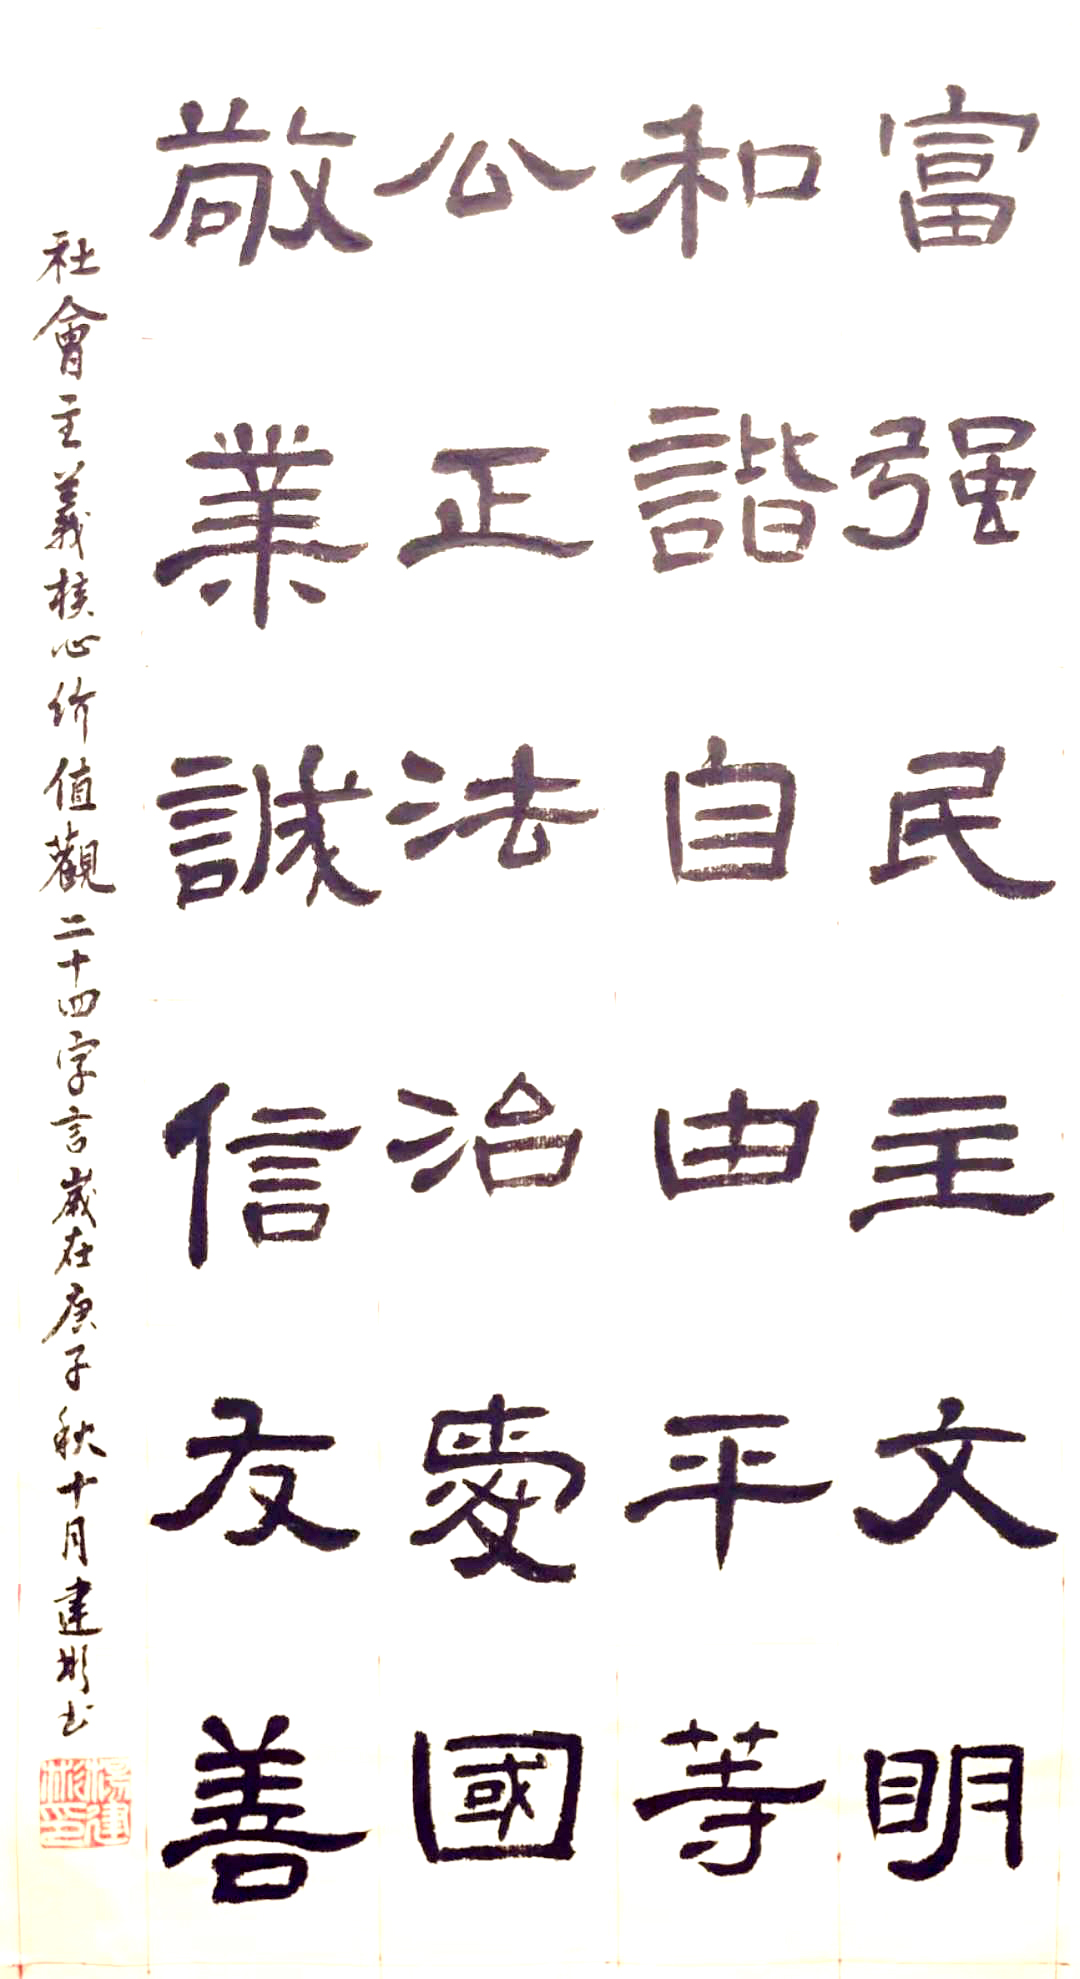 富强民主文明
和諧自由平等
公正法治愛國
敬業誠信友善
社會主義核心价值觀二十四字言歲在庚子秋十月建彬书
楊建彬印